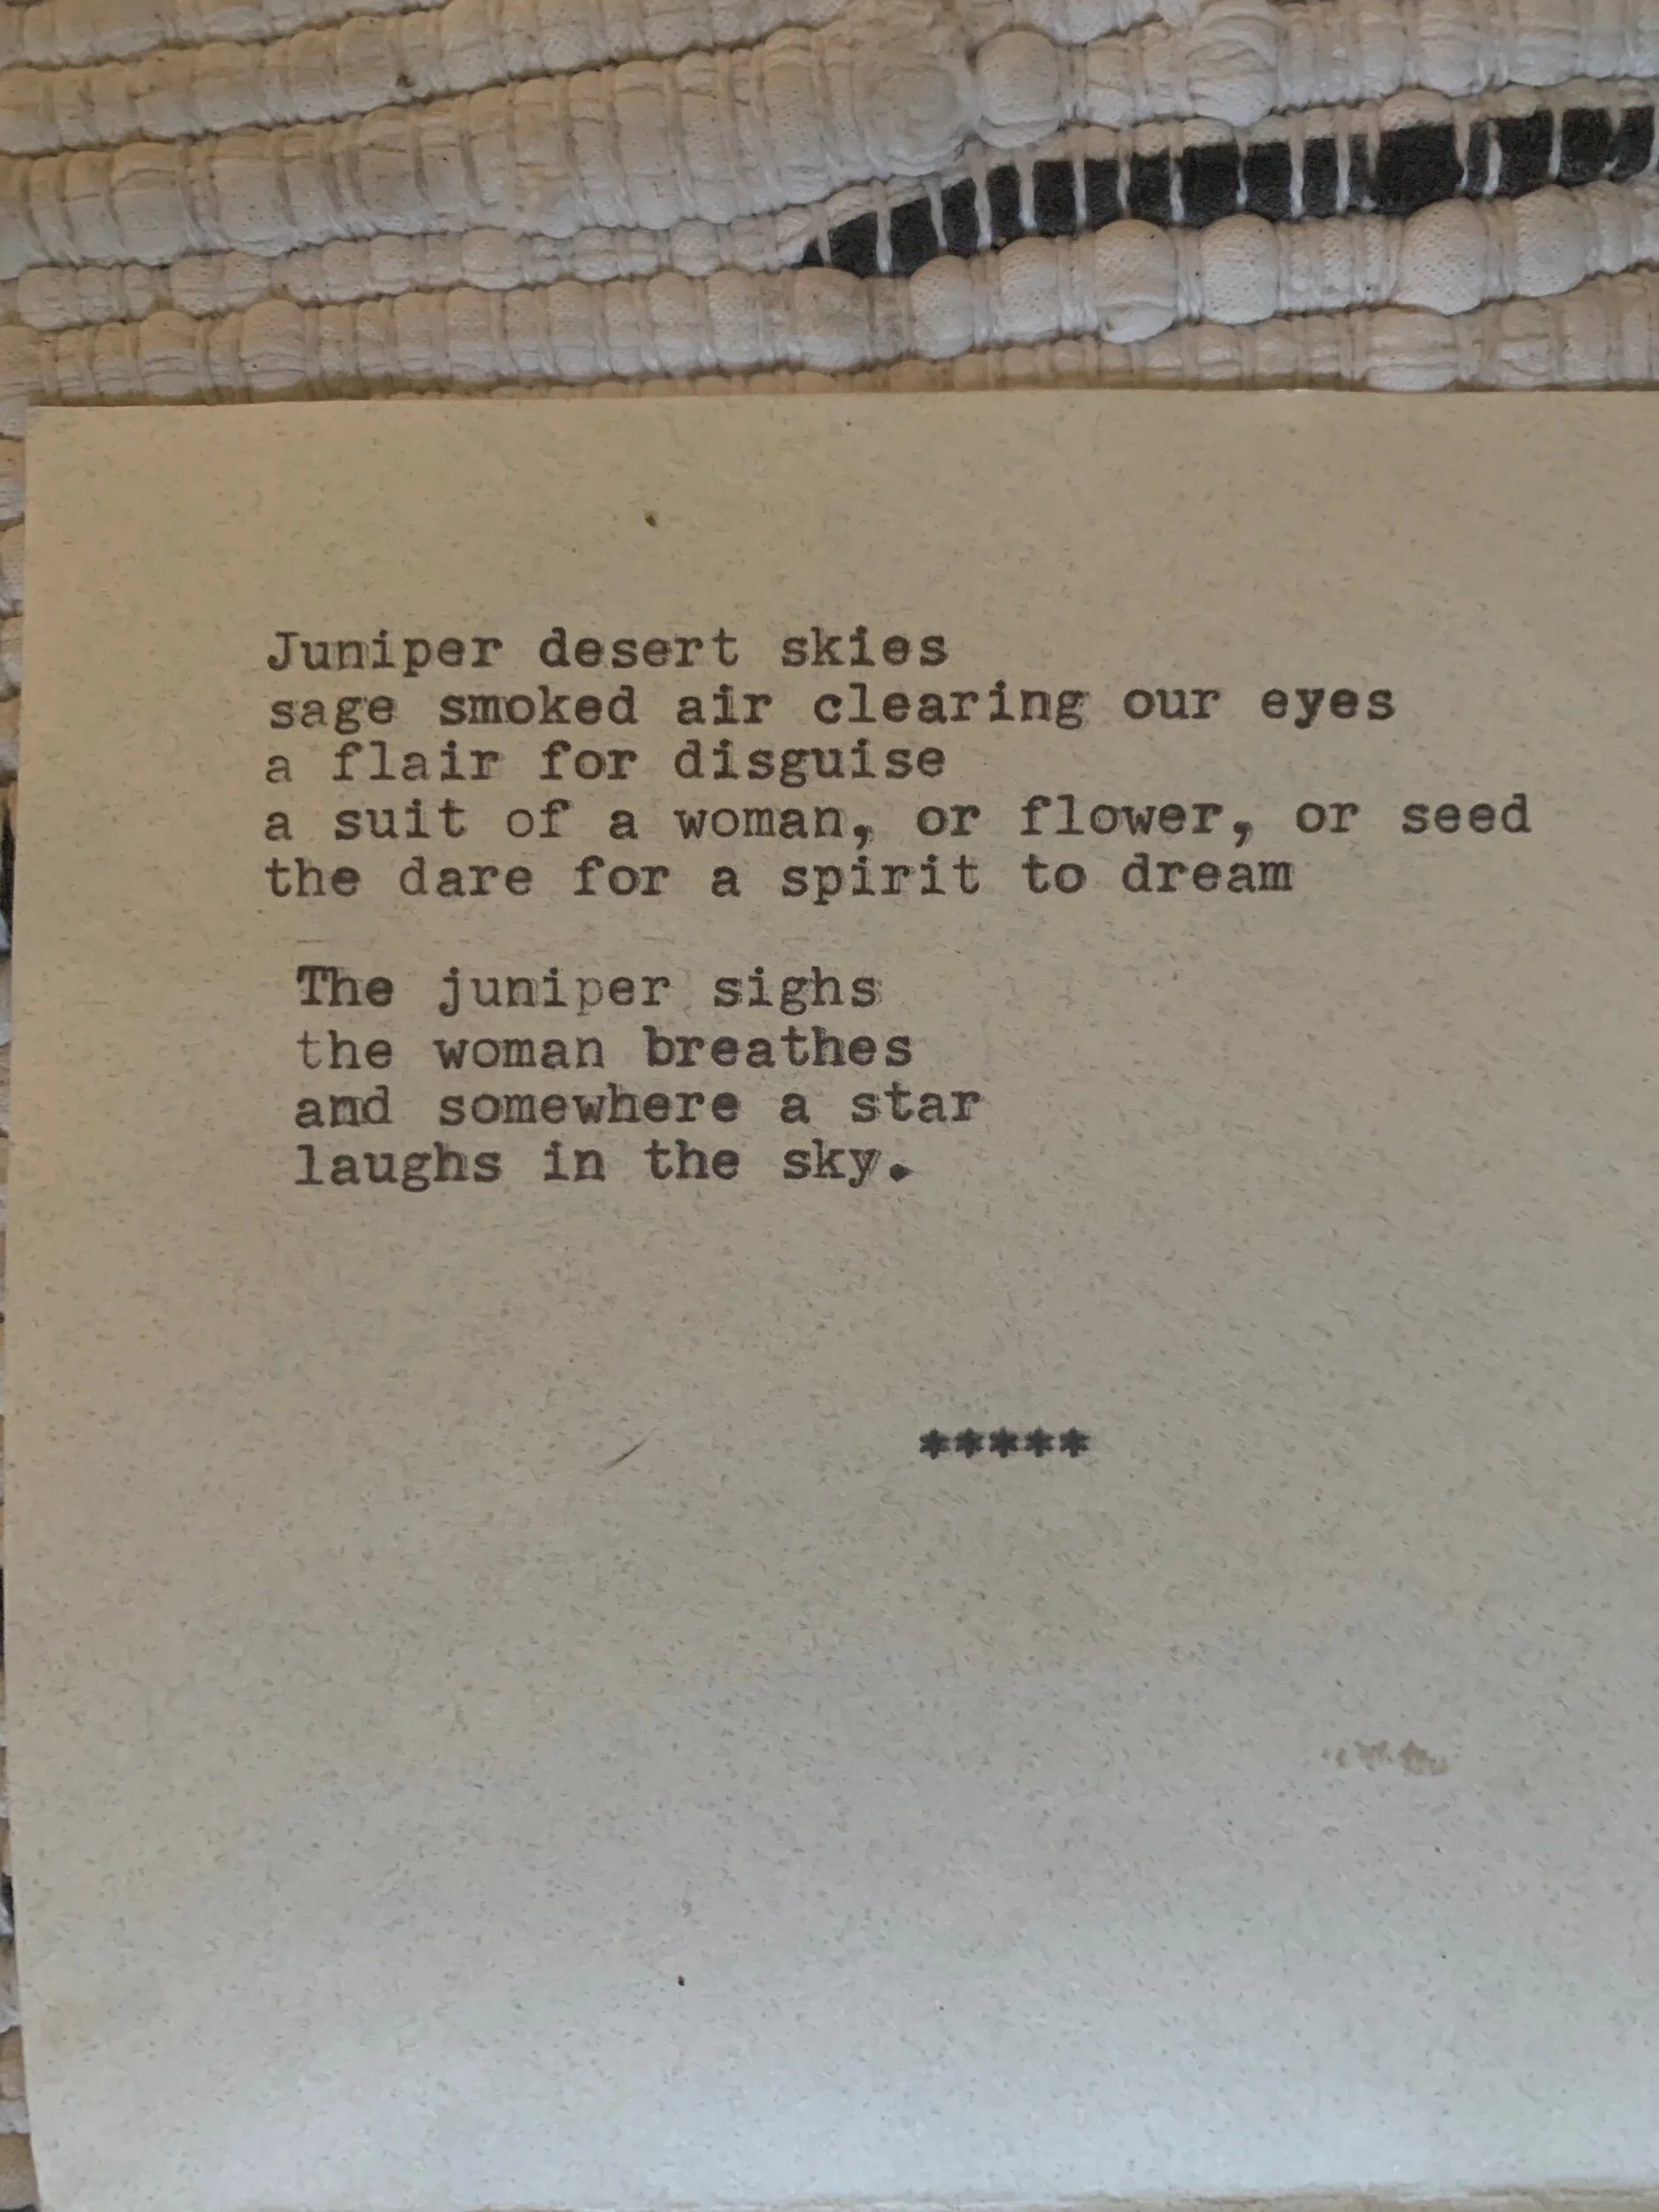 Juniper desert skies
sage smoked air clearing our eyes
a flair for disguise
a suit of a woman, or flower, or seed
the dare for a spirit to dream
The juniper sighs
the woman breathes
and somewhere a star
laughs in the sky.
*****